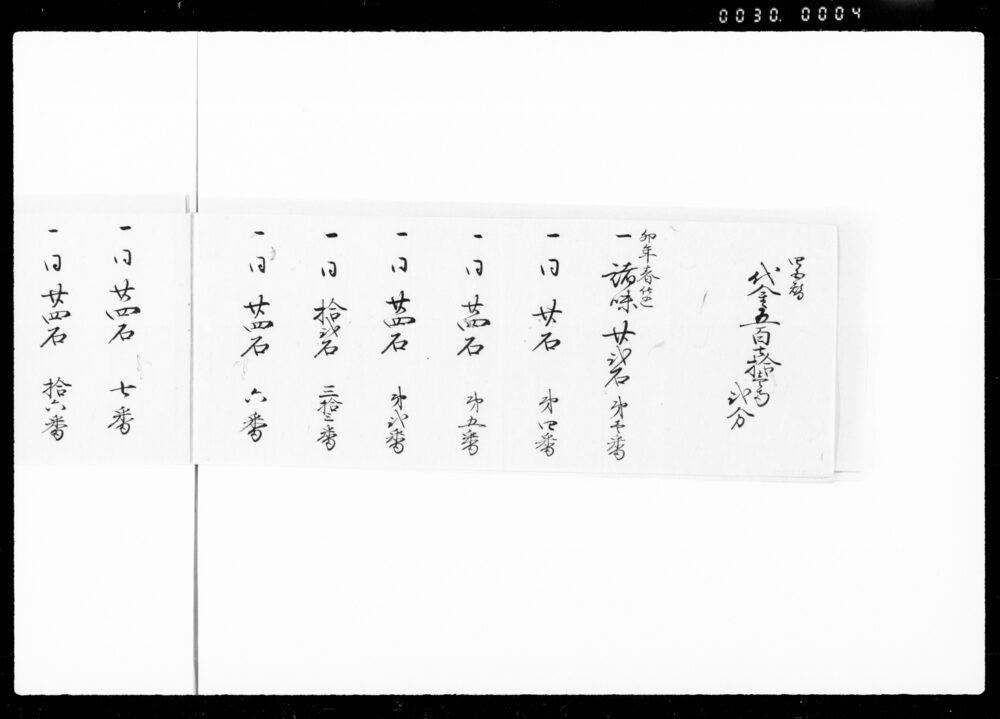 0030. 0004
代金五百七拾四両
弐分
卯年春仕込
一 諸味 廿弐石 第壱番
一 同 廿石 第四番
一 同 廿四石 第五番
一 同 廿四石 第弐番
一 同 拾弐石 三拾三番
一 同 廿四石 六番
一 同 廿四石 七番
一 同 廿四石 拾六番